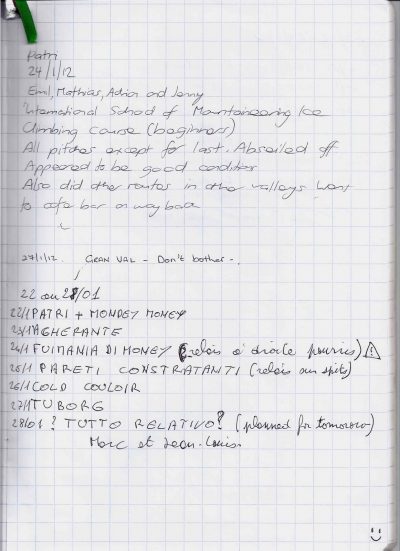 Patri
24/1/12
Emil, Mathias, Adrian and Jenny
International School of Mountaineering Ice
Climbing course (beginners)
All pitches except for last. Abseiled off
Appeared to be good condition
Also did other routes in other valleys. Went
to cafe bar on way back
27/1/12. GRAN VAL - Don't bother -.
22 au 28/01
22/1 PATRI + MONDEY MONEY
23/1 AGHERANTE
24/1 FUIMANIA DI MONEY (relais à droite pourris) ⚠
25/1 PARETI CONSTRATANTI (relais sur spits)
26/1 COLD COULOIR
27/1 TUBORG
28/01 ? TUTTO RELATIVO? (planned for tomorow)
Marc et Jean-Louis